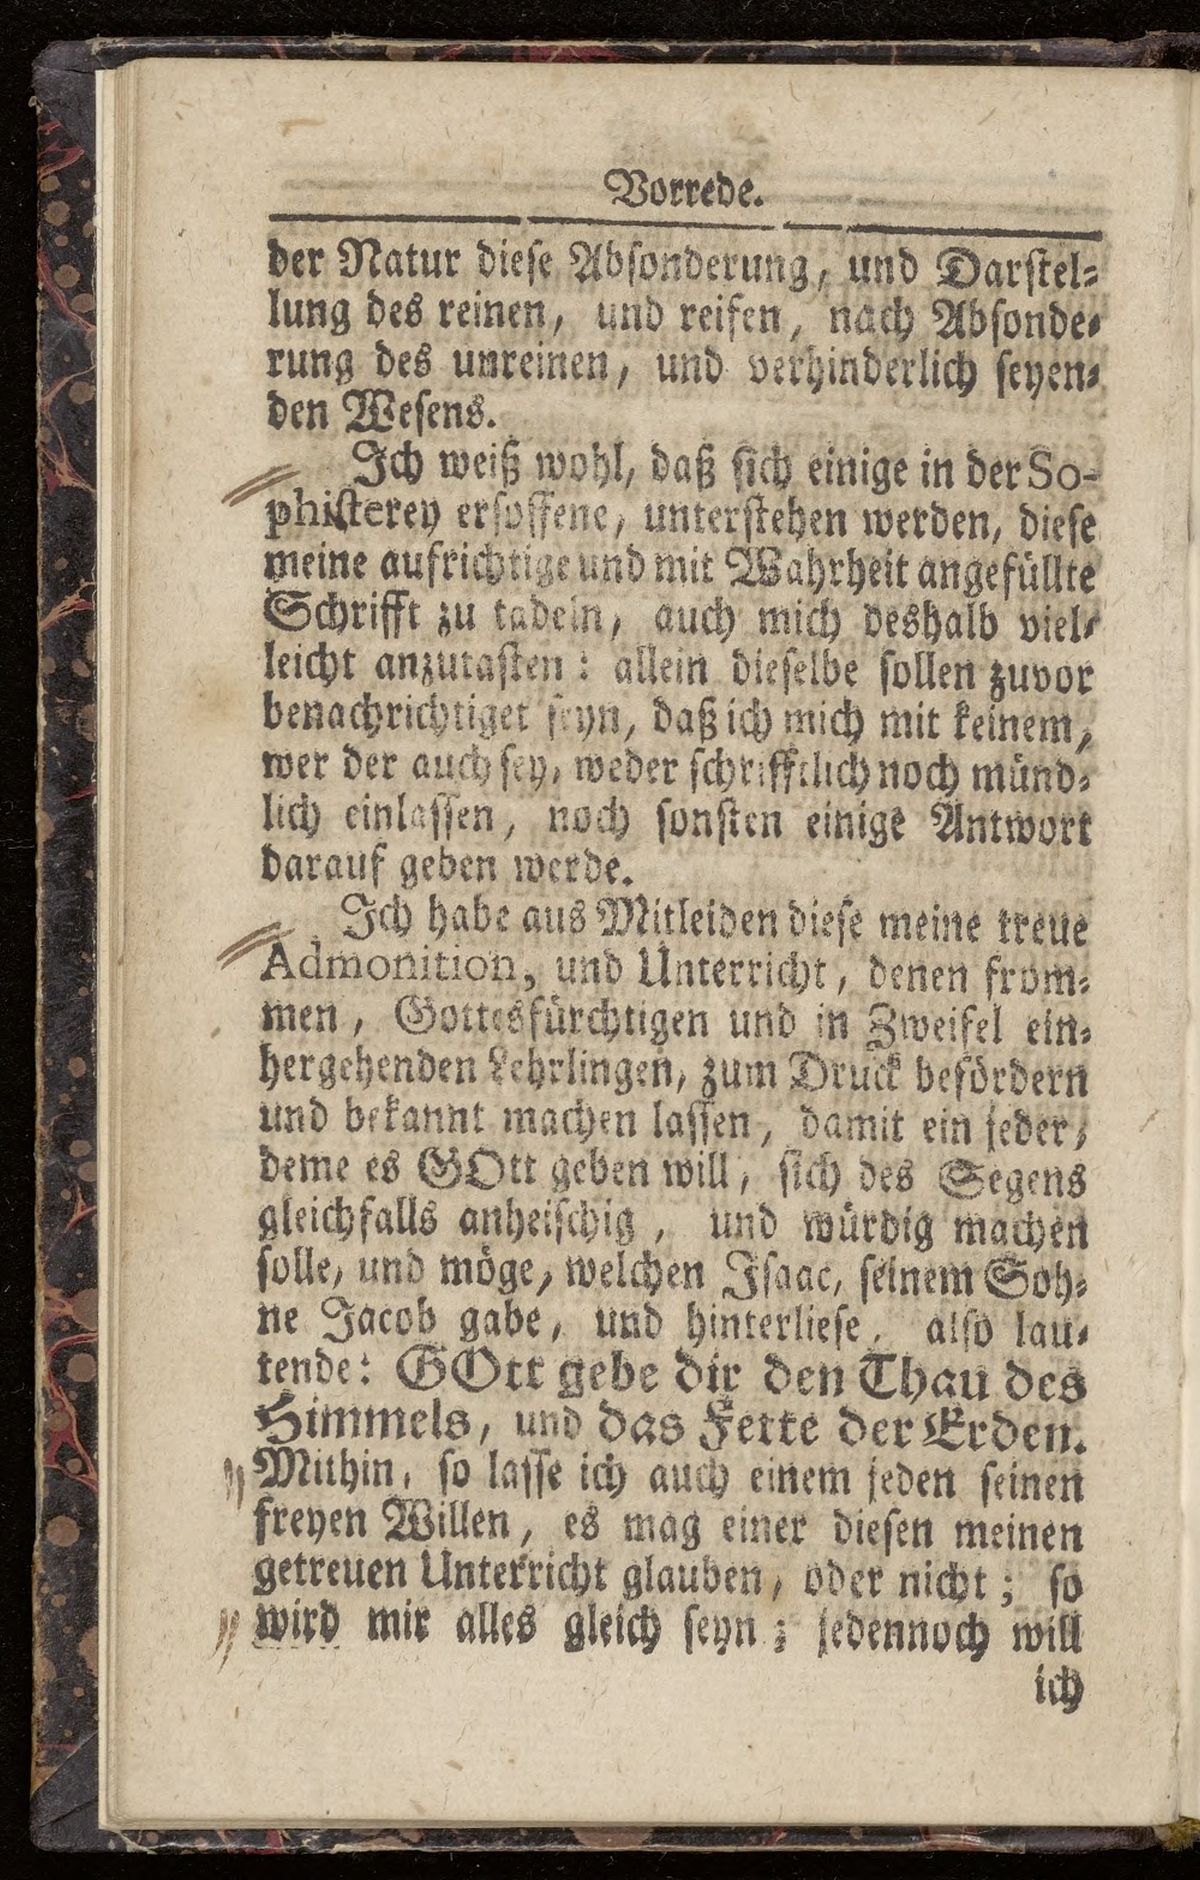 Vorrede.
der Natur dieſe Abſonderung, und Darſtel⸗
lung des reinen, und reifen, nach Abſonde⸗
rung des unreinen, und verhinderlich ſeyen⸗
den Weſens.
Ich weiß wohl, daß ſich einige in der So-
phiſterey erſoffene, unterſtehen werden, dieſe
meine aufrichtige und mit Wahrheit angefüllte
Schrifft zu tadeln, auch mich deshalb viel⸗
leicht anzutaſten: allein dieſelbe ſollen zuvor
benachrichtiget ſeyn, daß ich mich mit keinem,
wer der auch ſey, weder ſchrifftlich noch münd⸗
lich einlaſſen, noch ſonſten einige Antwort
darauf geben werde.
Ich habe aus Mitleiden dieſe meine treue
Admonition, und Unterricht, denen from⸗
men, Gottesfürchtigen und in Zweifel ein⸗
hergehenden Lehrlingen, zum Druck befördern
und bekannt machen laſſen, damit ein jeder,
deme es GOtt geben will, ſich des Segens
gleichfalls anheiſchig, und würdig machen
ſolle, und möge, welchen Iſaac, ſeinem Soh⸗
ne Jacob gabe, und hinterlieſe, alſo lau⸗
tende: GOtt gebe dir den Thau des
Himmels, und das Fette der Erden.
Mithin, ſo laſſe ich auch einem jeden ſeinen
freyen Willen, es mag einer dieſen meinen
getreuen Unterricht glauben, oder nicht; ſo
wird mir alles gleich ſeyn; jedennoch will
ich